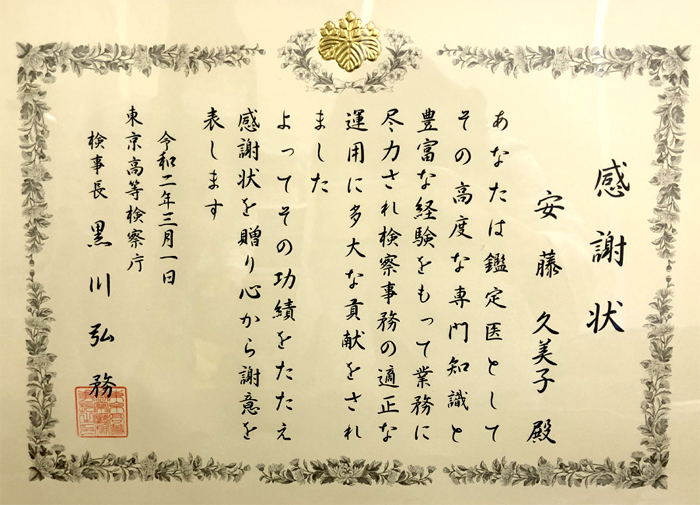 感謝状
安藤久美子殿
あなたは鑑定医として
その高度な専門知識と
豊富な経験をもって業務に
尽力され検察事務の適正な
運用に多大な貢献をされ
ました
よってその功績をたたえ
感謝状を贈り心から謝意を
表します
令和二年三月一日
東京高等検察庁
検事長 黒川弘務